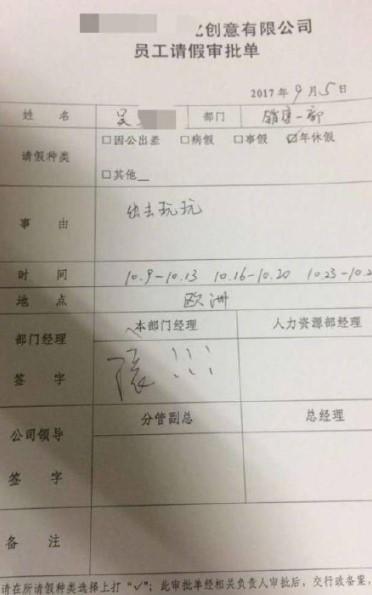 创意有限公司
员工请假审批单
2017年9月5日
姓 名 吴 部门 销售一部
请假种类 □因公出差 □病假 □事假 ☑年休假
□其他__
事 由 出去玩玩
时 间 10.9-10.13 10.16-10.20 10.23-10.2
地 点 欧洲
部门经理 本部门经理 人力资源部经理
签 字 张
公司领导 分管副总 总经理
签 字
备 注
请在所请假种类选择上打“√”；此审批单经相关负责人审批后，交行政备案，